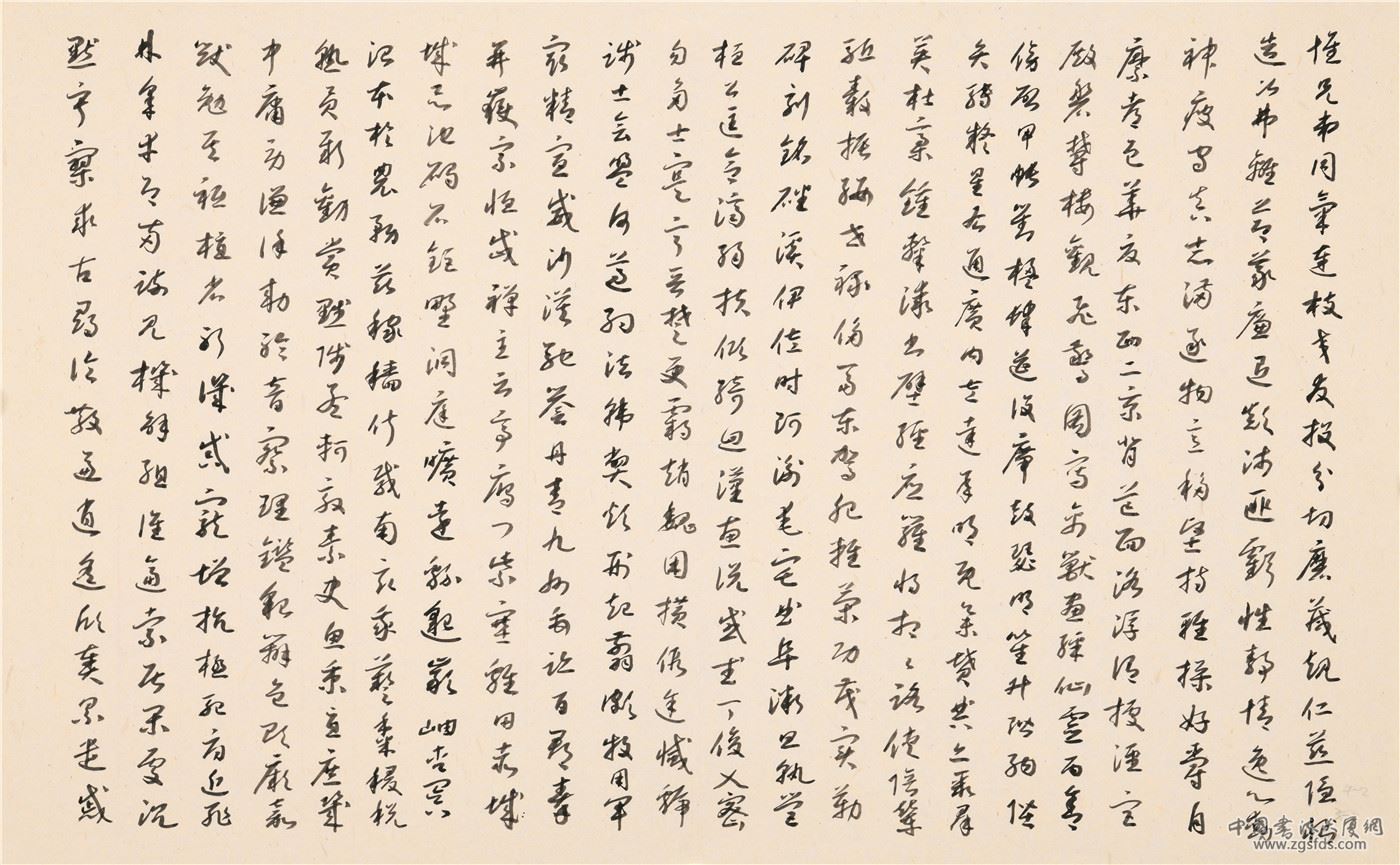 懷兄弟同氣連枝交友投分切磨箴規仁慈隱惻
造次弗離節義廉退顛沛匪虧性靜情逸心動
神疲守真志滿逐物意移堅持雅操好爵自
縻都邑華夏東西二京背芒面洛浮渭據涇宮
殿盤鬱樓觀飛驚圖寫禽獸畫綵仙靈丙舍
傍啟甲帳對楹肆筵設席鼓瑟吹笙升階納陛
弁轉疑星右通廣內左達承明既集墳典亦聚群
英杜稾鍾隸漆書壁經府羅將相路俠陪輦
驅轂振纓世祿侈富車駕肥輕策功茂實勒
碑刻銘磻溪伊佐時阿衡奄宅曲阜微旦孰營
桓公匡合濟弱扶傾綺迴漢惠說感武丁俊乂密
勿多士寔寧晉楚更霸趙魏困橫假途滅虢
踐土會盟何遵約法韓弊煩刑起翦頗牧用軍
最精宣威沙漠馳譽丹青九州禹跡百郡秦
并嶽宗恒岱禪主云亭雁門紫塞雞田赤城
城昆池碣石鉅野洞庭曠遠緜邈巖岫杳冥
治本於農務茲稼穡俶載南畝我藝黍稷稅
熟貢新勸賞黜陟孟軻敦素史魚秉直庶幾
中庸勞謙謹敕聆音察理鑑貌辨色貽厥嘉
猷勉其祗植省躬譏誡寵增抗極殆辱近恥
林皋幸即兩疏見機解組誰逼索居閒處沉
默寂寥求古尋論散慮逍遙欣奏累遣慼
中国书法大厦网
www.zgsfds.com